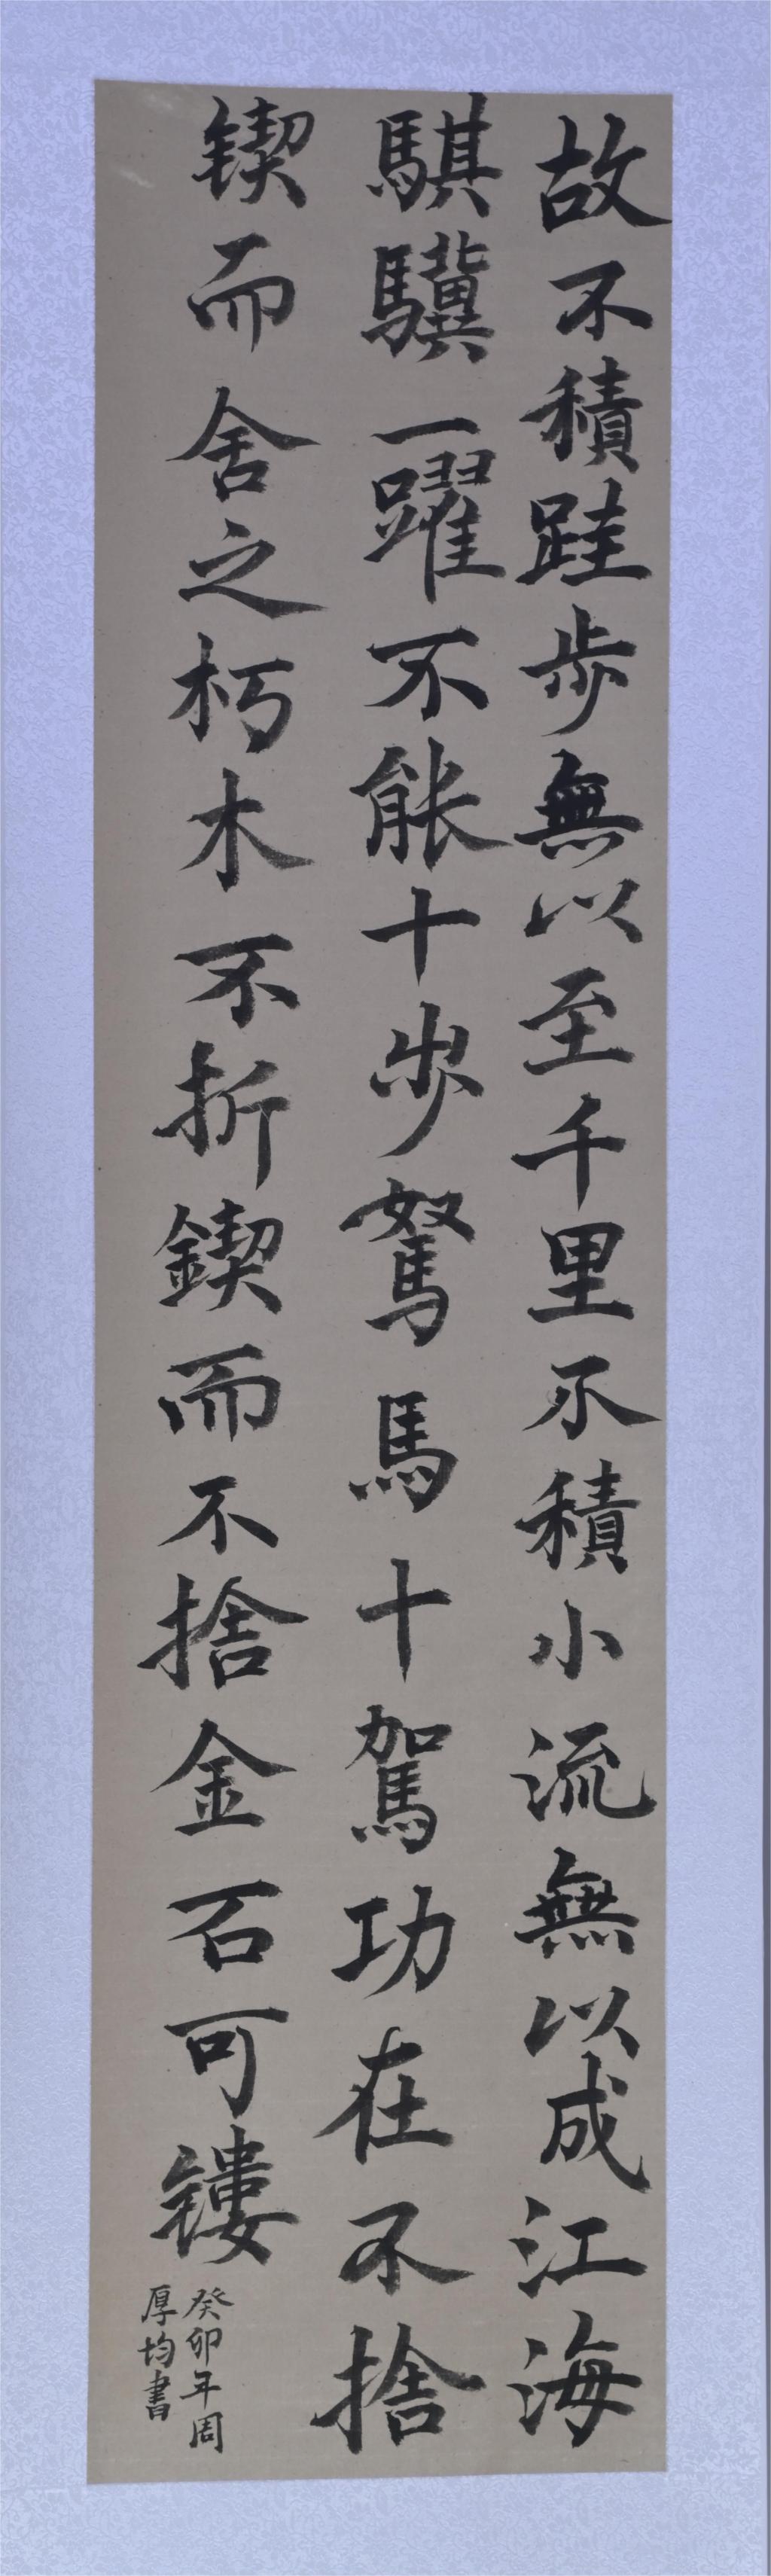 故不積跬步無以至千里不積小流無以成江海
騏驥一躍不能十步駑馬十駕功在不捨
锲而舍之朽木不折鍥而不捨金石可镂
癸卯年周
厚均書